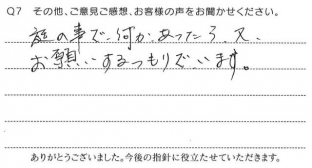 Q7 その他、ご意見ご感想、お客様の声をお聞かせください。
庭の事で、何かあったら、又、
お願いするつもりでいます。
ありがとうございました。今後の指針に役立たせていただきます。